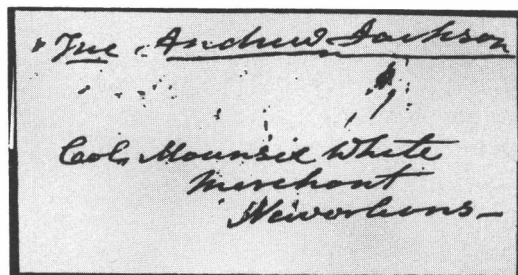 Free Andrew Jackson
Col, Maunsel White
Merchant
Neworleans